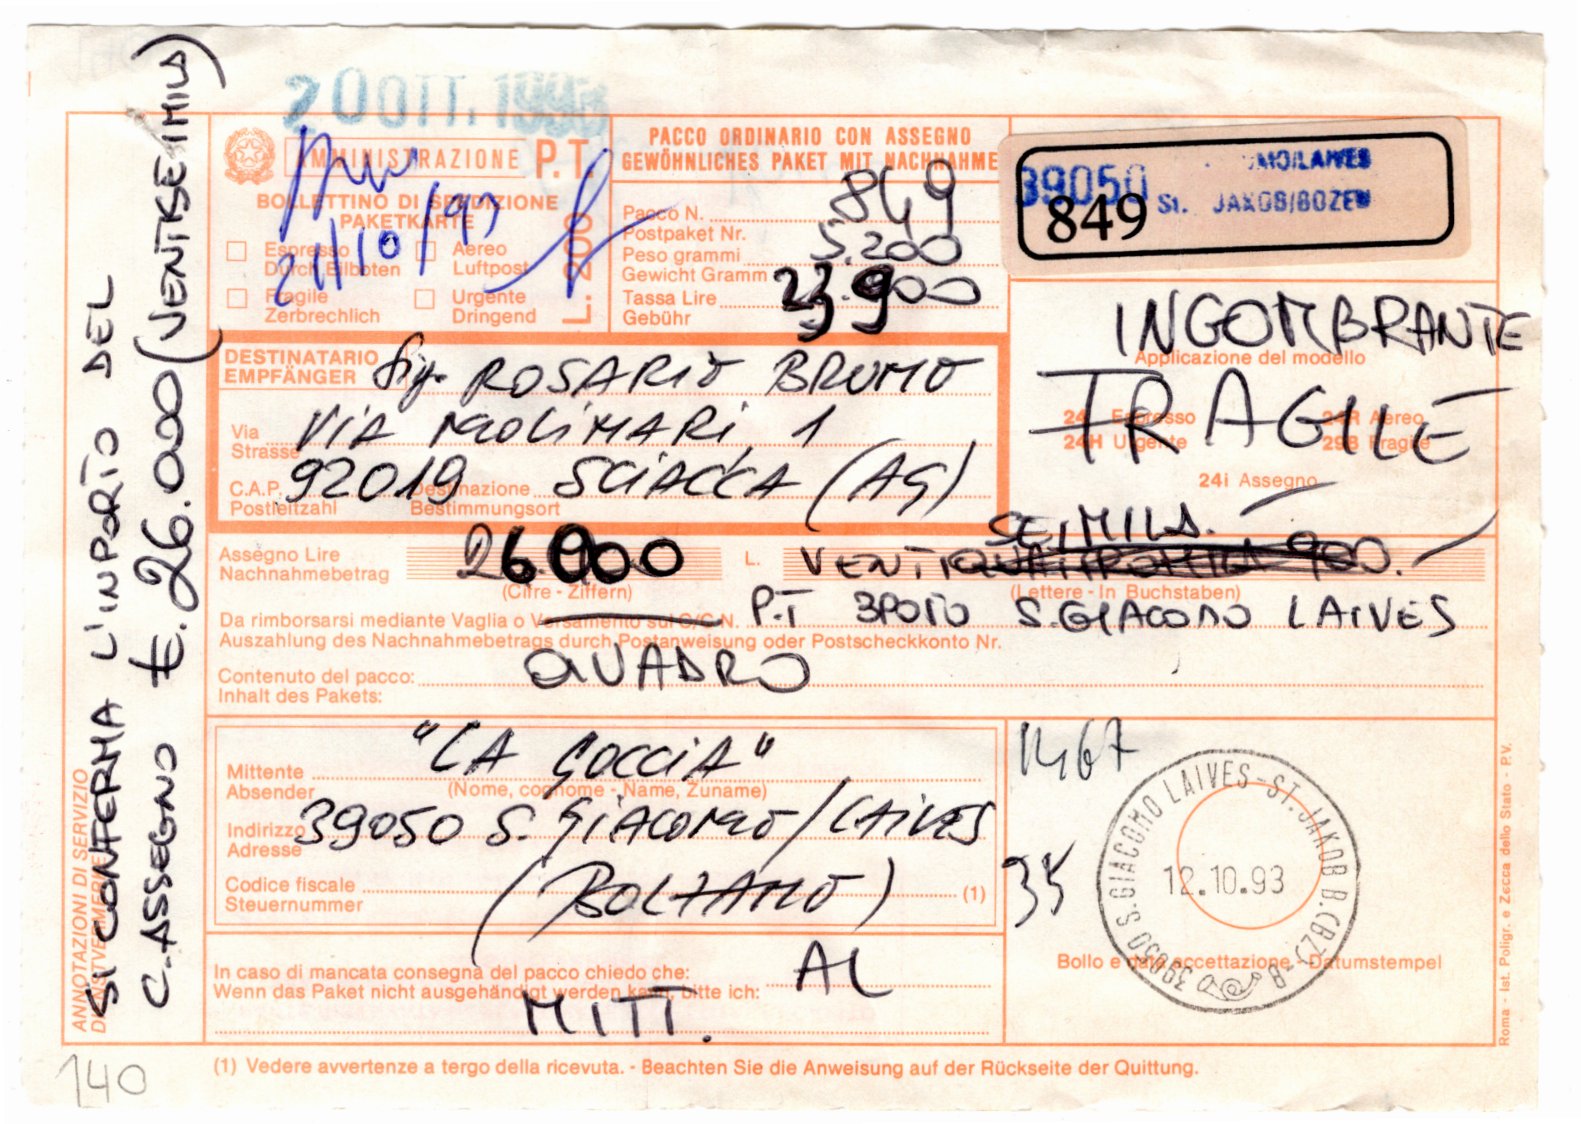 20 OTT. 1993
AMMINISTRAZIONE P.T.
BOLLETTINO DI SPEDIZIONE
PAKETKARTE
Espresso
Durch Eilboten
Aereo
Luftpost
Fragile
Zerbrechlich
Urgente
Dringend
L. 200
21/10/93
PACCO ORDINARIO CON ASSEGNO
GEWÖHNLICHES PAKET MIT NACHNAHME
Pacco N. 849
Postpaket Nr.
Peso grammi 5.200
Gewicht Gramm
Tassa Lire 23.900
Gebühr
39050 MO/LAIVES
St. JAKOB/BOZEN
849
INGOMBRANTE
Applicazione del modello
FRAGILE
24 Espresso
24R Aereo
24H Urgente
29B Fragile
24i Assegno
DESTINATARIO
EMPFÄNGER
Sig. ROSARIO BRUNO
Via MOLINARI, 1
Strasse
C.A.P. 92019 Destinazione SCIACCA (AG)
Postleitzahl Bestimmungsort
Assegno Lire 26.000 L. VENTI SEIMILA.
Nachnahmebetrag
(Cifre - Ziffern)
(Lettere - In Buchstaben)
Da rimborsarsi mediante Vaglia o Versamento sul C/C N. P.T S.GIACOMO LAIVES
Auszahlung des Nachnahmebetrags durch Postanweisung oder Postscheckkonto Nr.
Contenuto del pacco: QUADRO
Inhalt des Pakets:
Mittente "LA GOCCIA"
Absender
(Nome, cognome - Name, Zuname)
Indirizzo 39050 S. GIACOMO/LAIVES
Adresse
(BOLZANO)
Codice fiscale (1)
Steuernummer
In caso di mancata consegna del pacco chiedo che: AL
Wenn das Paket nicht ausgehändigt werden kann, bitte ich:
MITT.
1467
35
39050 S.GIACOMO LAIVES-ST.JAKOB B.(BZ)-B
12.10.93
Bollo e data accettazione - Datumstempel
(1) Vedere avvertenze a tergo della ricevuta. - Beachten Sie die Anweisung auf der Rückseite der Quittung.
140
ANNOTAZIONI DI SERVIZIO
DIENSTVERMERKE
SI CONFERMA L'INPORTO DEL
C.ASSEGNO £. 26.000 (VENTISEIMILA)
Roma - Ist. Poligr. e Zecca dello Stato - P.V.